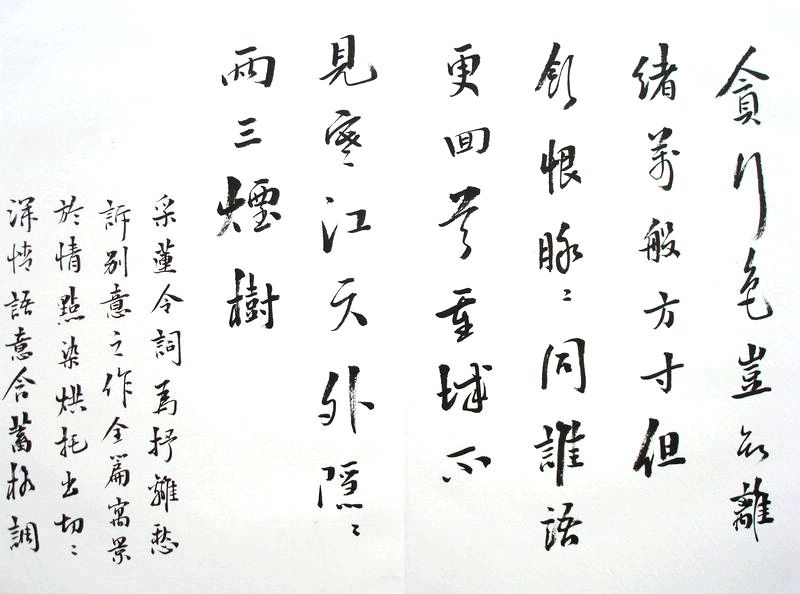 貪行色豈知離
緒萬般方寸但
飲恨脉〻同誰語
更回首重城不
見寒江天外隱〻
兩三煙樹
采蓮令詞為抒離愁
訴別意之作全篇寓景
於情點染烘托出切〻
深情語意含蓄格調